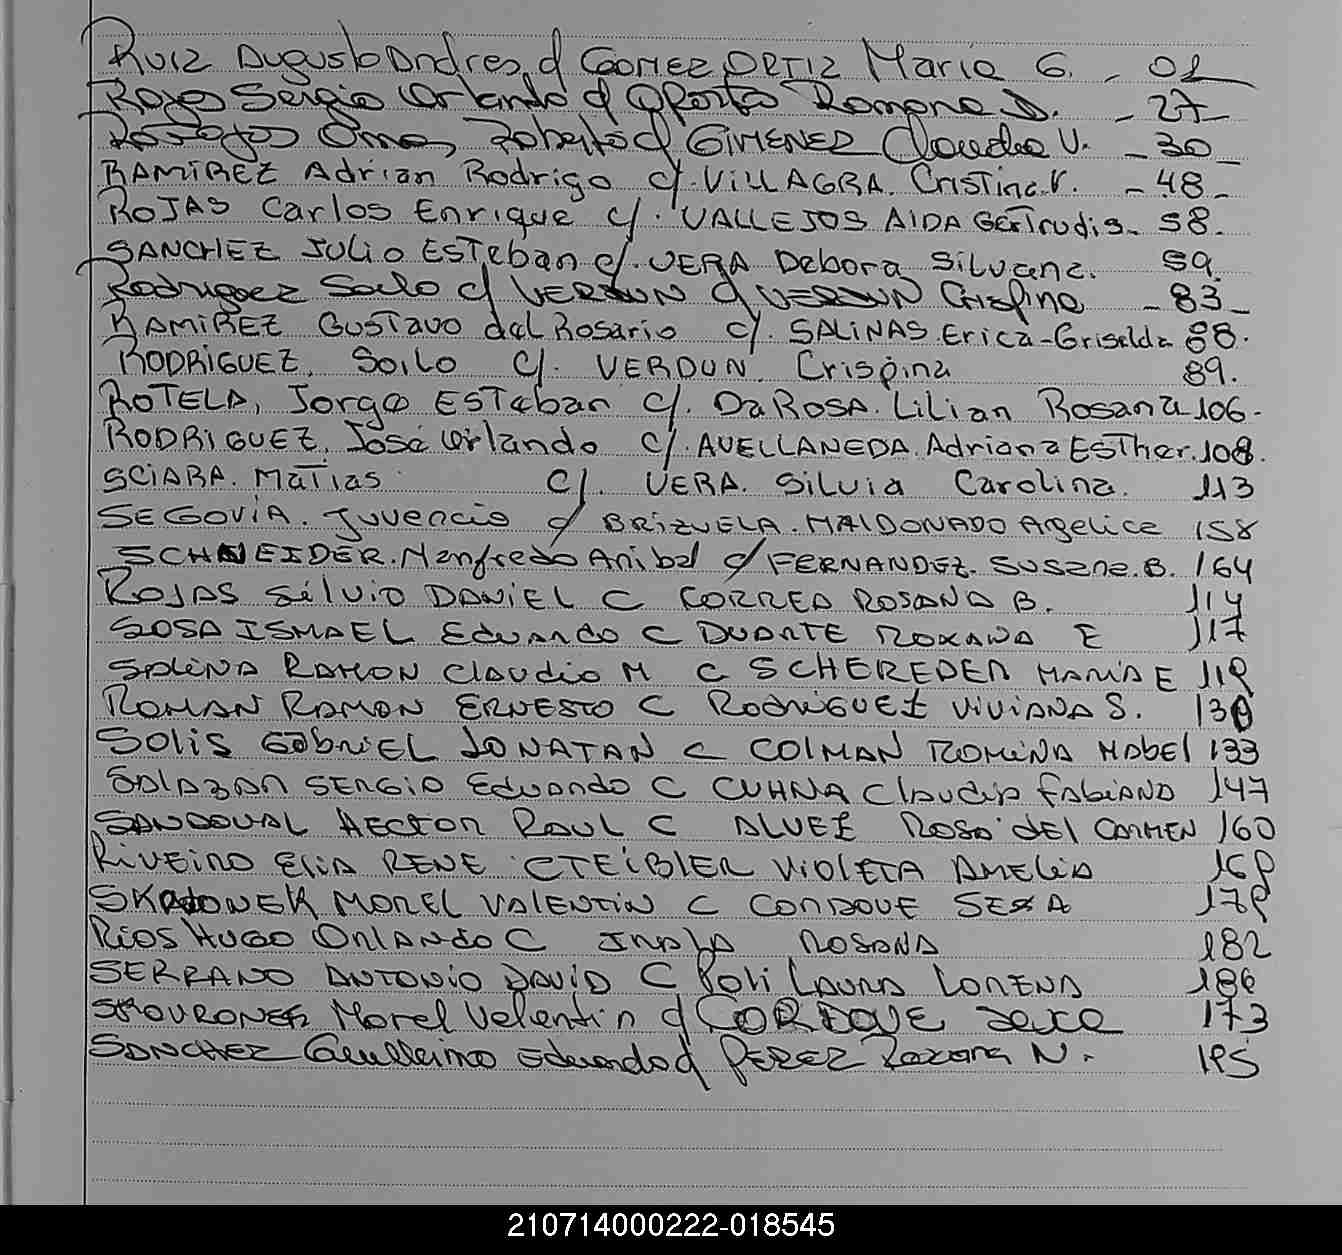 RUIZ Augusto Andres c/ GOMEZ ORTIZ Maria G. - 01
Rojas Sergio Orlando c/ Aponte Romona D. - 27
Omar Roberto c/ GIMENEZ Claudia V. - 30 -
RAMIREZ Adrian Rodrigo c/. VILLAGRA. Cristina V. - 48 -
ROJAS Carlos Enrique c/. VALLEJOS AIDA Gertrudis. 58.
SANCHEZ JULIO ESTeban c/. VERA Debora Silvana. 59.
Rodriguez Soilo c/ VERDUN c/ VERDUN Crispina - 83 -
RAMIREZ Gustavo del Rosario c/. SALINAS. Erica-Griselda 88.
RODRIGUEZ. Soilo c/. VERDUN. Crispina 89.
ROTELA, Jorge ESTeban c/. DaROSA. Lilian Rosana 106.
RODRIGUEZ. José orlando c/. AVELLANEDA. Adriana ESTher. 108.
SCIARA. MaTias c/. VERA. Silvia Carolina. 113
SEGOVIA. Juvencio c/ BRIZUELA. MALDONADO Argelice 158
SCHNEIDER. Manfredo Anibal c/ FERNANDEZ. Susana. B. 164
ROJAS Silvio DANIEL C CORREA ROSANA B. 114
SOSA ISMAEL Eduardo C DUARTE ROXANA E 117
SALINA RAMON Claudio M C SCHEREDER MARIA E 119
ROMAN RAMON ERNESTO C RodRIGUEZ VIVIANA S. 130
SOLIS GABRIEL JONATAN C COLMAN ROMINA MABEL 133
SALAZAR SERGIO Eduardo C CUHNA Claudia FABIANA 147
SANDOVAL HECTOR RAUL C ALVEZ ROSA DEL CARMEN 160
RIVEIRO Elia RENE CTEIBLER VIOLETA AMELIA 169
MOREL VALENTIN C CORDOVE SEXA 179
RIOS HUGO ORLANDO C ROSANA 182
SERRANO ANTONIO DAVID C Poli LAURA LORENA 186
Morel Valentin c/ CORDOVE 173
SANCHEZ Guillermo Eduardo c/ PEREZ Roxana N. 195
210714000222-018545